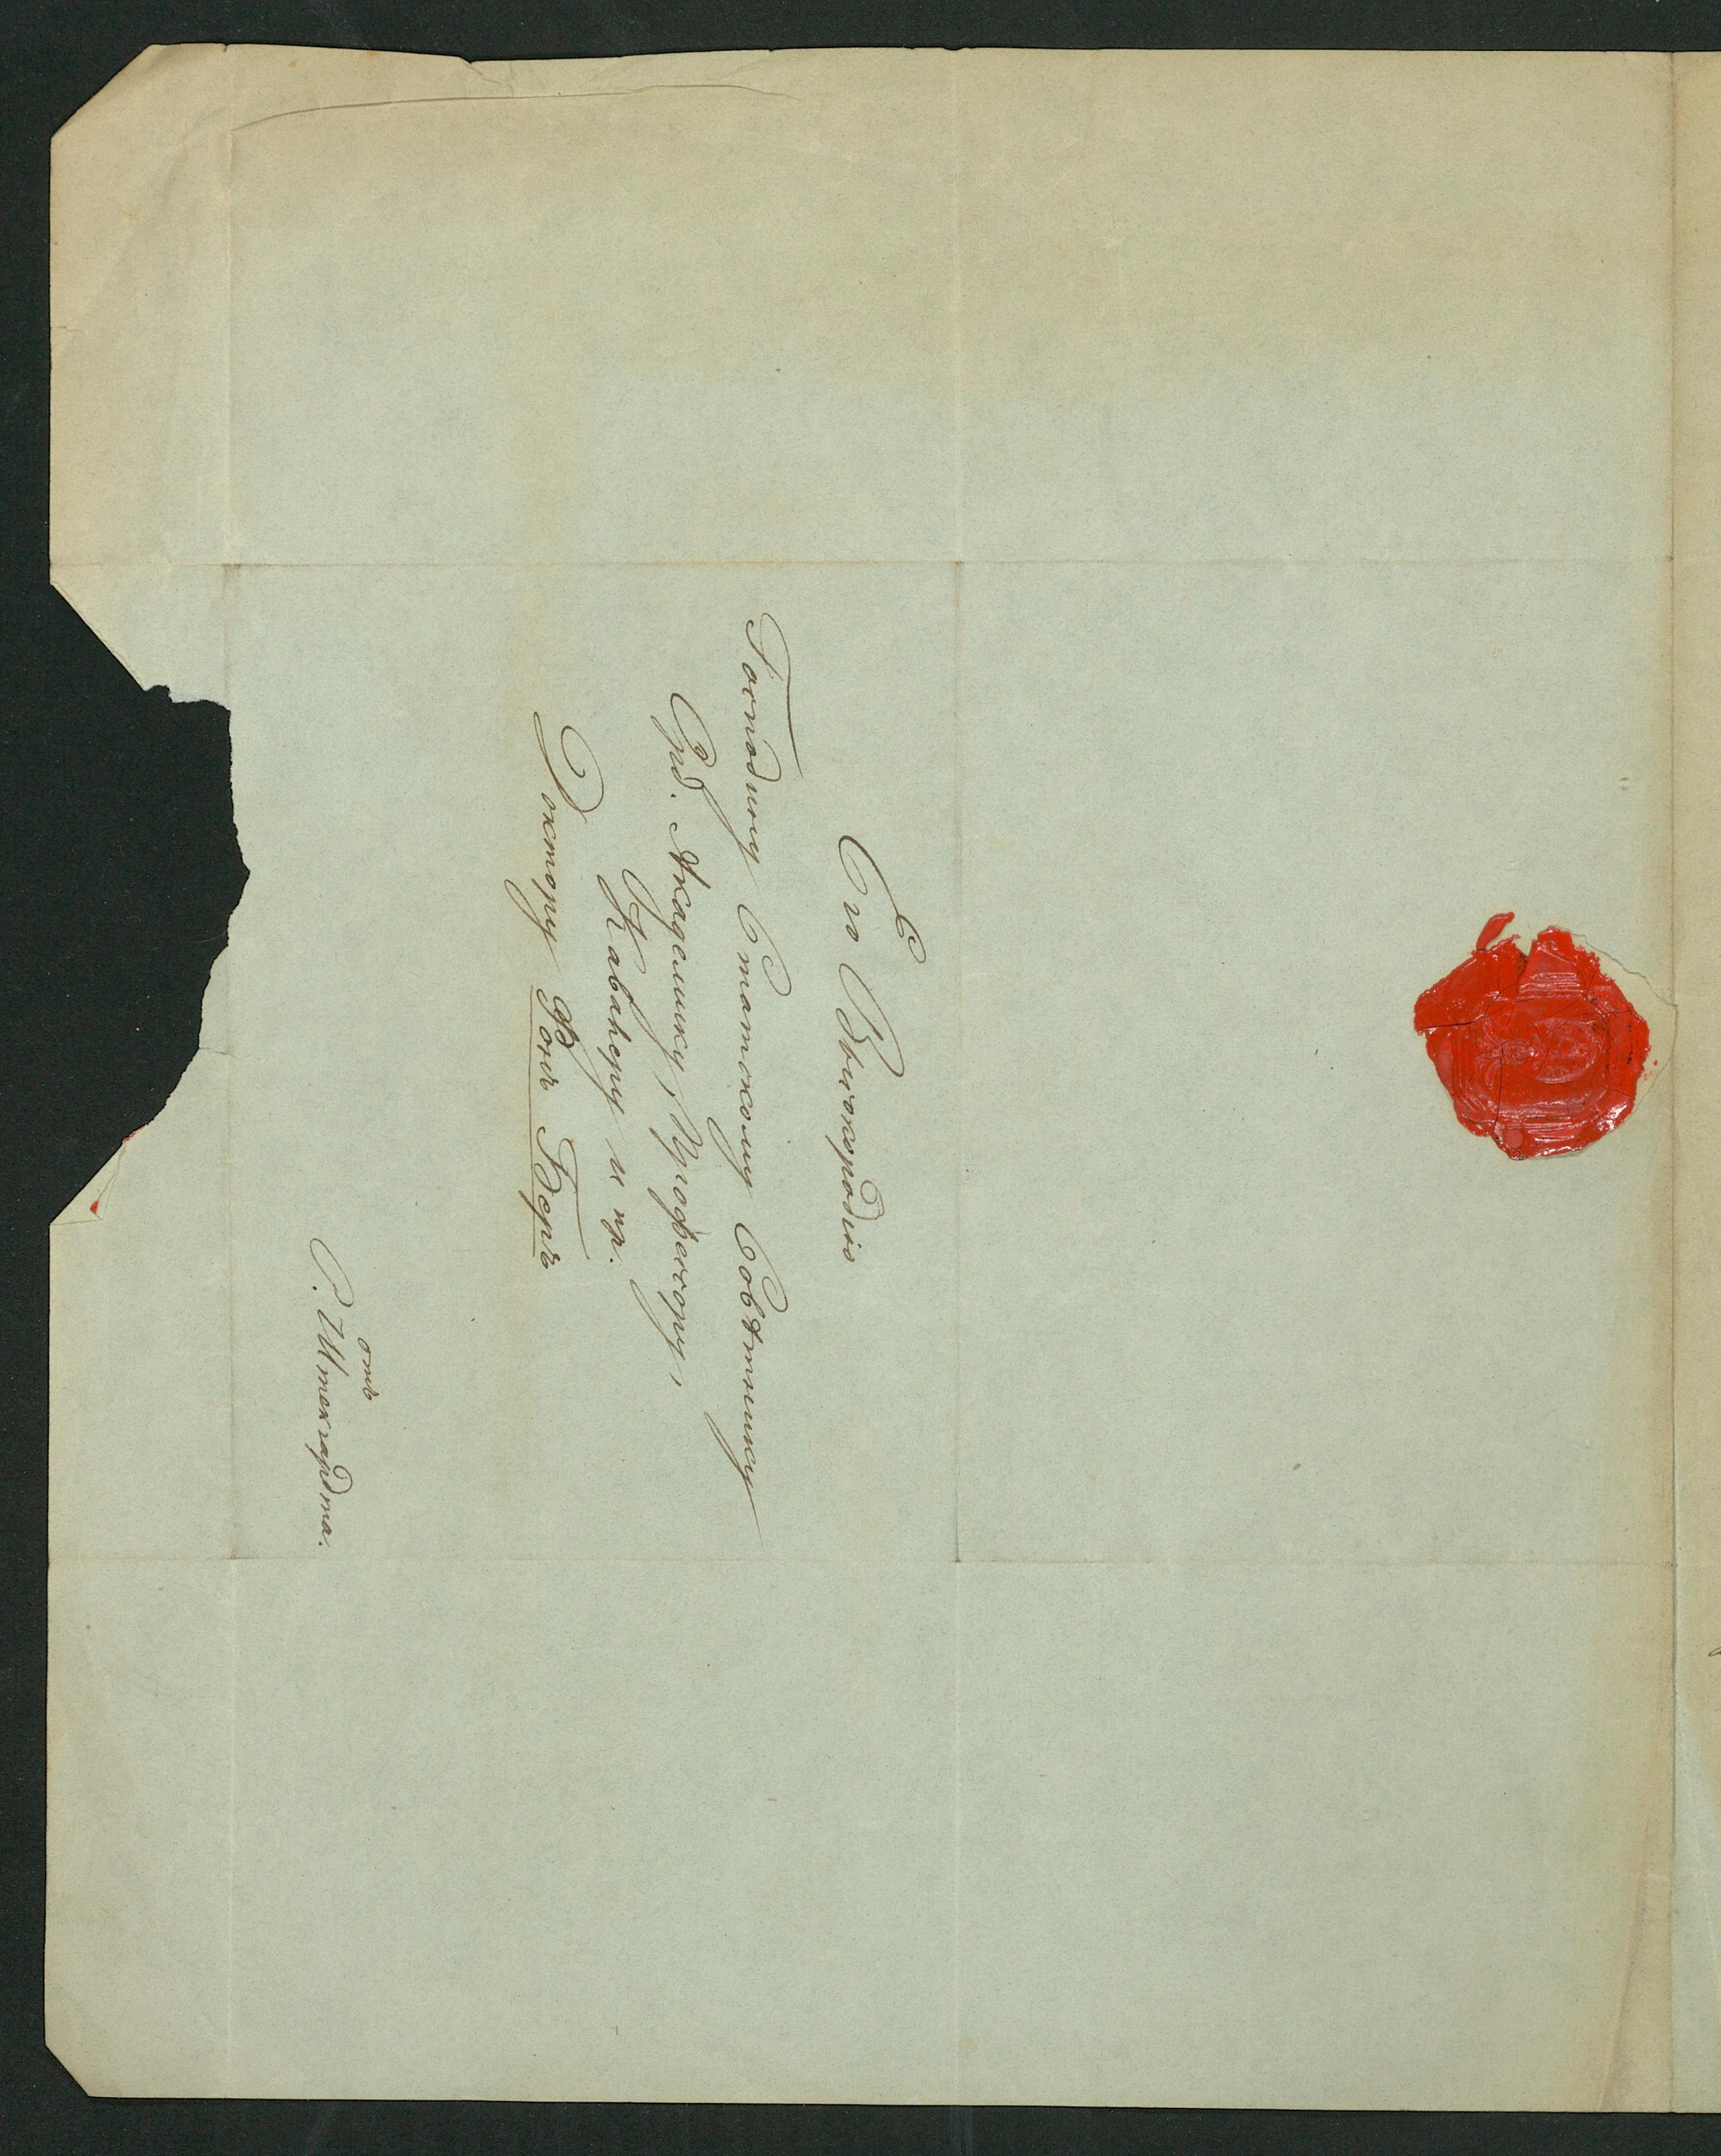 Его Высокородію
Господину Статскому Совѣтнику
Орд. Академику, Профессору,
Кавалеру и пр.
Доктору Фонъ Беръ
отъ
Р. Штекгардта.